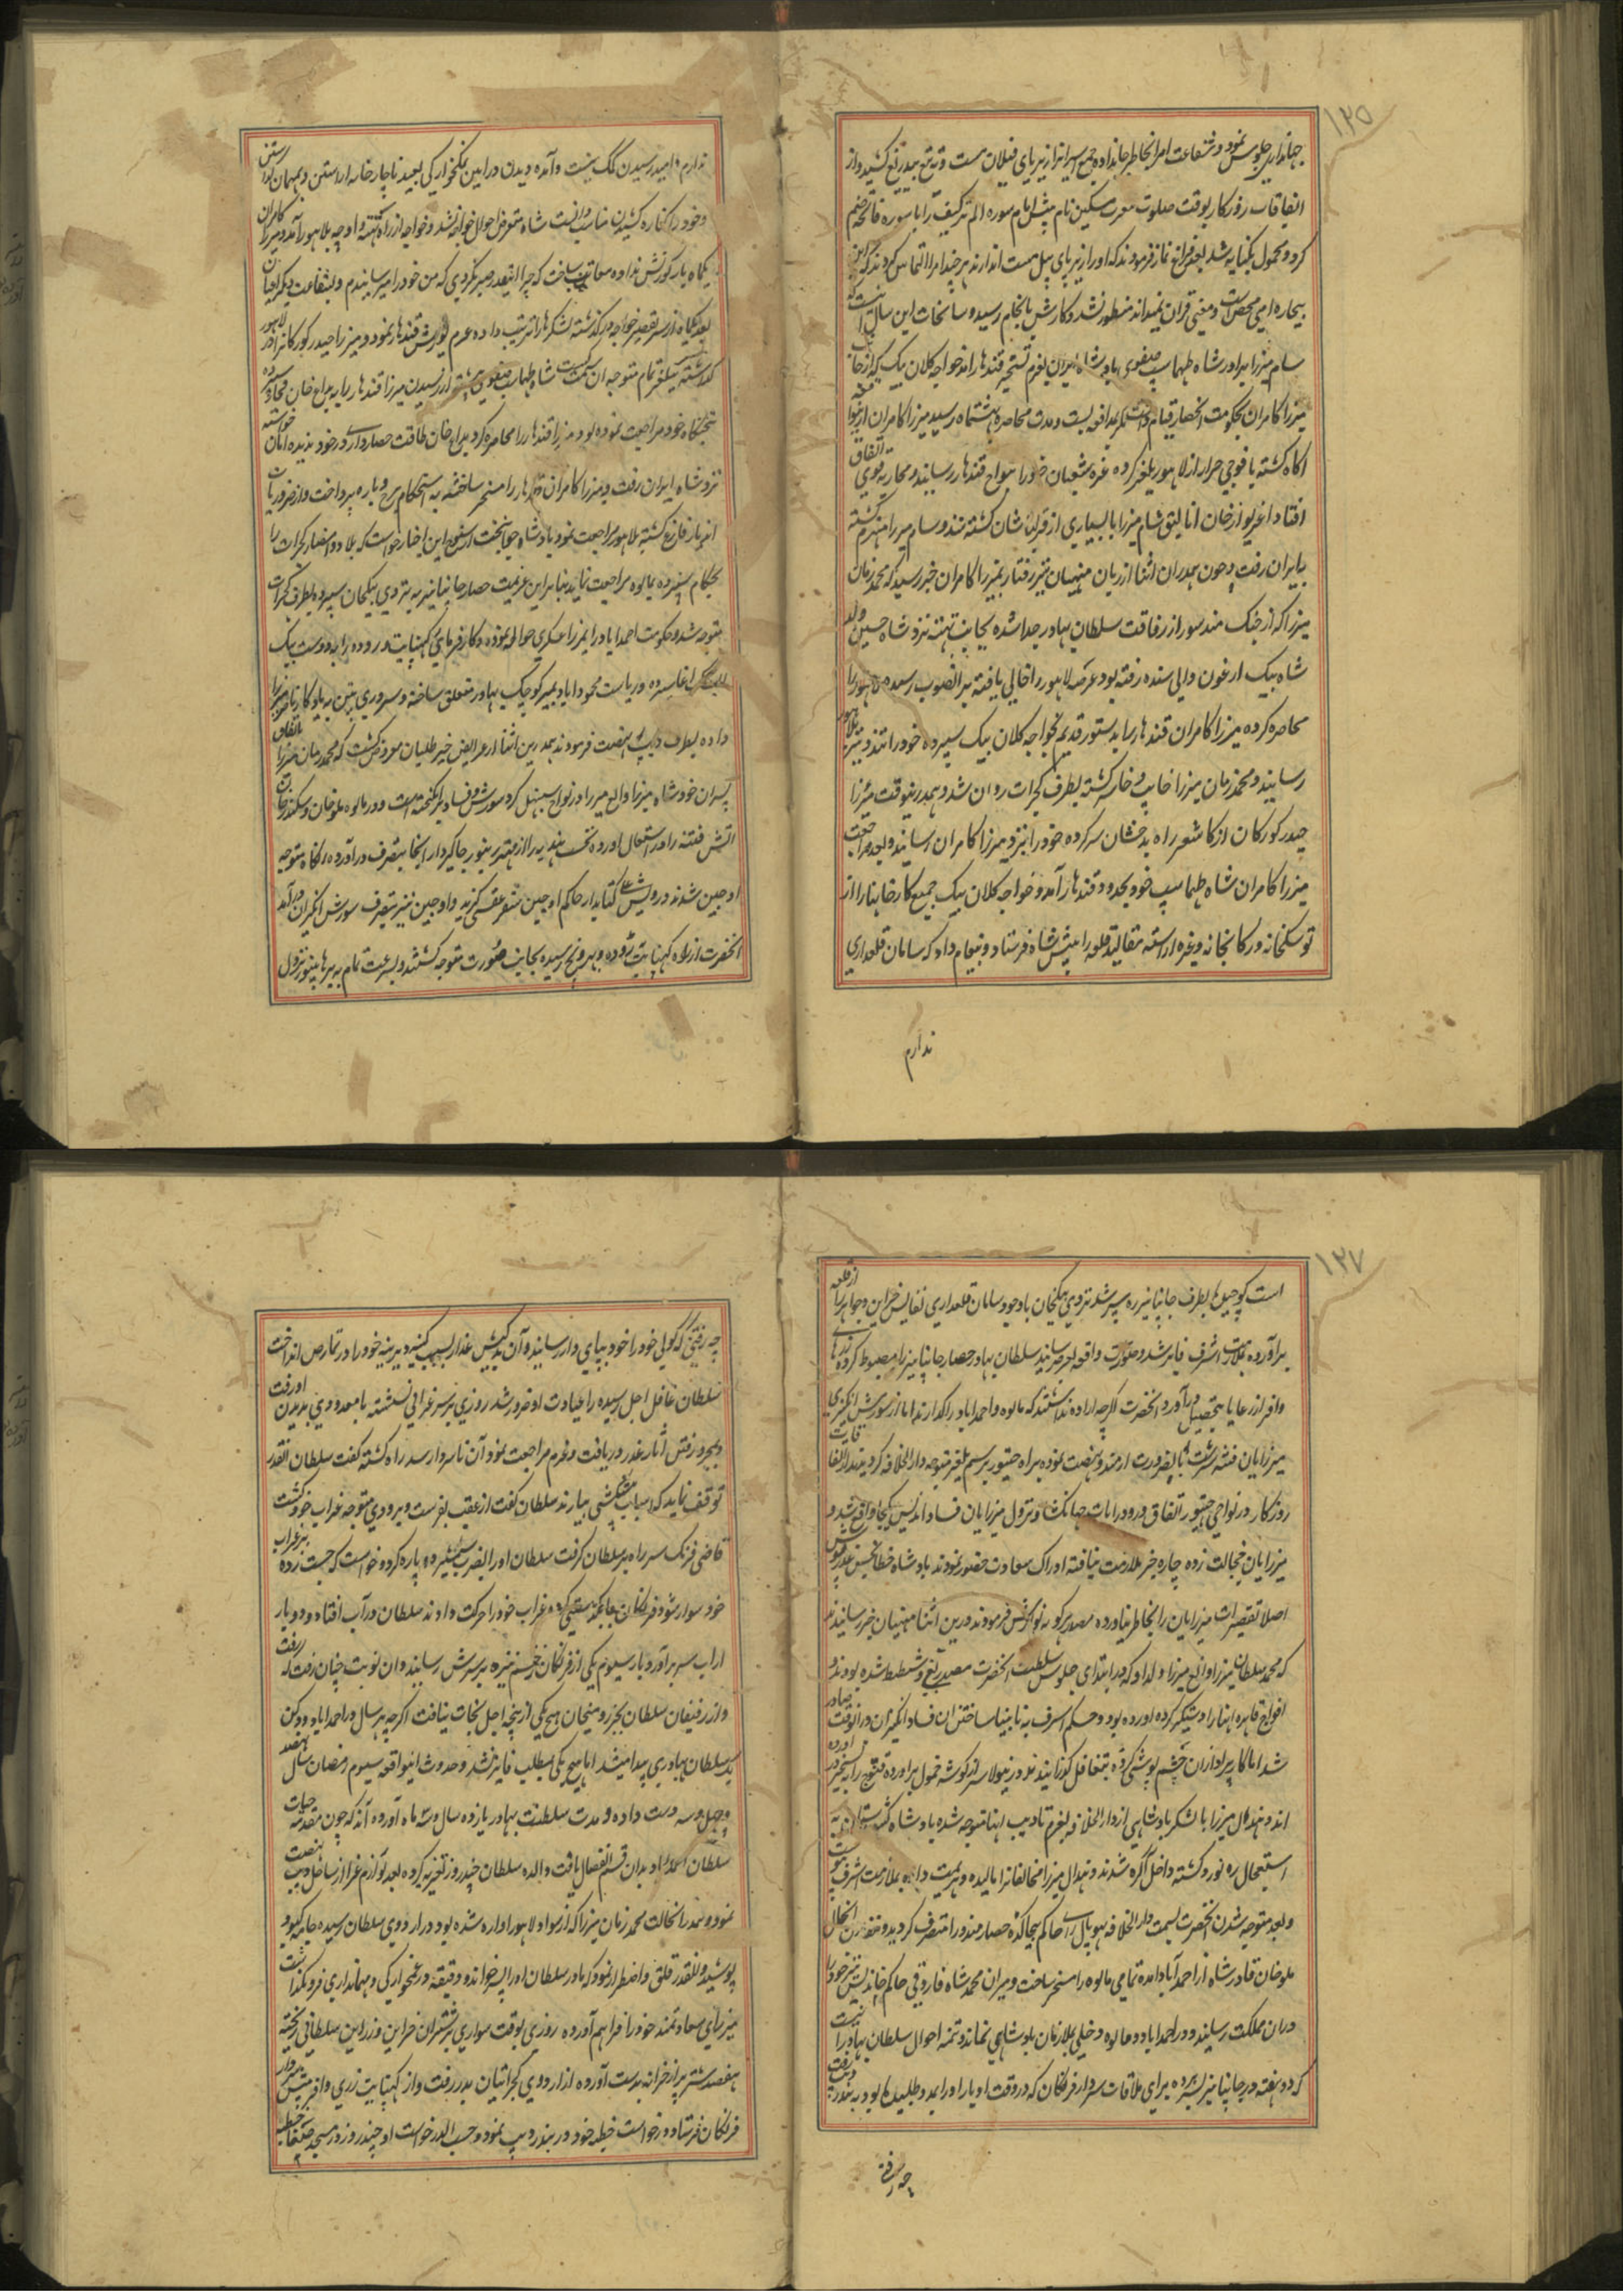 ۱۲۵
جهانداری جلوس نمود و شفاعت امرا بخاطر جا نداده جمیع اسیرانرا زیر پای فیلان مست و تیغ بیدریغ کشید و از
اتفاقات روزکار بوقت صلوت مغرب مسکین نام پیش امام سوره الم ترکیف را با سوره فاتحه ضم
کرد و محمول بکنایه شد بعد فراغ نماز فرمودند که او را زیر پای پیل مست اندازند هر چند امرا التماس کردند که این
بیچاره امی محض است و معنی قران نمیداند منظور نشد و کارش بانجام رسید و سانحات این سال انست که
سام میرزا برادر شاه طهماسپ صفوی بادشاه ایران بعزم تسخیر قندهار امد خواجه کلان بیک که از جانب
میرزا کامران بحکومت انحصار قیام داشت کمر مدافعه بست و مدت محاصره بهشتماه رسید میرزا کامران ازینواقعه
اکاه کشته با فوجی جرار از لاهور یلغر کرده غره شعبان خود را بنواح قندهار رسانید و محاربه قوی اتفاق
افتاد اغزیوار خان اتالیق شام میرزا با بسیاری از قزلباشان کشته شد و سام میرزا منهزم کشته
بایران رفت و چون بهدران اثنا از زبان منهیان تیز رفتار بمیرزا کامران خبر رسید که محمد زمان
میرزا که از جنک مندسور از رفاقت سلطان بهادر جدا شده بجانب تهته نزد شاه حسین ولد
شاه بیک ارغون والی سنده رفته بود عرصه لاهور را خالی یافته بدانصوب رسیده لاهور را
محاصره کرده میرزا کامران قندهار را بدستور قدیم بخواجه کلان بیک سپرده خود را تند و تیز بلاهور
رسانید و محمد زمان میرزا خایب و خاسر کشته بطرف کجرات روان شد و بهدرینوقت میرزا
حیدر کورکان از کاشغر راه بدخشان سر کرده خود را نزد میرزا کامران رسانید و بعد مراجعت
میرزا کامران شاه طهماسپ خود بحدود قندهار آمد و خواجه کلان بیک جمیع کارخانها را از
توشکخانه و رکابخانه و غیره اراسته مقالید قلعه را پیش شاه فرستاد و پیغام داد که سامان قلعداری
ندارم
ندارم و امید رسیدن کمک نیست و آمده دیدن در ایین نمکخوارکی بعید ناچار خانه اراستن و بمهمان کذاشتن
و خود را کناره کشیدن مناسب دانست شاه متعرض احوال خواجه نشد و خواجه از راه تهته و اوچه بلاهور آمد و میرزا کامران
یکماه بار کورنش نداده معاتب ساخت که چرا اینقدر صبر نکردی که من خود را میرسانیدم و بشفاعت دیکر اعیان
بعد یکماه از سر تقصیر خواجه در کذشته لشکرها را ترتیب داده عزم یورش قندهار نمود و میرزا حیدر کورکانرا در لاهور
کذاشته بیلغر تمام متوجه ان سمت کشت شاه طهماسپ صفوی پیشتر از رسیدن میرزا قندهار را به بداغ خان قجار سپرده
بتختکاه خود مراجعت نموده بود میرزا قندهار را محاصره کرد بداغ خان طاقت حصارداری در خود ندیده امان خواسته
نزد شاه ایران رفت و میرزا کامران قندهار را مسخر ساخته به استحکام برج و باره پرداخت و از ضروریات
انجا باز فارغ کشته بلاهور مراجعت نمود بادشاه جوانبخت از شنیدن این اخبار خواست که بلاد و امصار کجرات را
بحکام سپرده بمالوه مراجعت نمایند بنابراین عزیمت حصار جانپانیر به تردی بیکخان سپرده بطرف کجرات
متوجه شد و حکومت احمداباد را بمیرزا عسکری حواله نموده و کار فرمایی کنبایت و بروده را به دوست بیک
ایشک اغا سپرده و ریاست محموداباد بمیر کوچک بهادر متعلق ساخته و سروری پتن به یادکار ناصر میرزا
داده بطرف دیپ نهضت فرمودند بهدرین اثنا از عرایض خیرطلبان معروض کشت که محمد زمان میرزا باتفاق
پسران خود شاه میرزا و الغ میرزا در نواح سنبهل کرد شورش و فساد برانکیخته است و در مالوه ملوخان و سکندر خان
اتش فتنه را در اشتعال اورده تحت هندیه را از مهتر زنبور جاکیردار انجا بتصرف در آورده رانکاه متوجه
اوجین شدند درویش علی کتابدار حاکم اوجین سفر عقبی کزید و اوجین نیز بتصرف شورش انکیزان در آمد
انحضرت از راه کنبایت بروده و بهروچ رسیده بجانب صورت متوجه کشتند و بسرعت تمام به برهانپور نزول
۱۲۷
است کوچیلها بطرف جانپانیر ره سپر شد تردی بیکخان با وجود سامان قلعداری نفایس خزاین و جواهر را از قلعه
براورده بملازمت اشرف فایز شد و صورت واقعه بعرض رسانید سلطان بهادر حصار جانپانیر را مضبوط کرده زرهای
وافر از رعایا بتحصیل در آورد انحضرت اکرچه اراده نداشتند که مالوه و احمداباد را کذارند اما از شورش انکیزی
میرزایان فتنه سرشت بالضرورت از مندو نهضت نموده براه چیتور برسم یلغر متوجه دار الخلافه کردیدند از اتفاقات
روزکار در نواحی چیتور اتفاق ورود رایات جهانکشا و نزول میرزایان فساد اندیش یکجا واقع شد و
میرزایان خجالت زده چاره جز ملازمت نیافته ادراک سعادت حضور نمودند بادشاه خطا بخش عذر نیوش
اصلا تقصیرات میرزایان را بخاطر نیاورده مصدر کونه نوازش فرمودند درین اثنا منهیان خبر رسانیدند
که محمد سلطان میرزا و الغ میرزا ولد او که در ابتدای جلوس سلطنت انحضرت مصدر بغی و شیطنت شده بودند و
افواج قاهره اینها را دستکیر کرده اورده بود و حکم اشرف به نابینا ساختن ان فساد انکیزان در انوقت صادر
شد اما کارپردازان چشم پوشی کرده بتغافل کذرانیدند درینولا سر از کوشه خمول براورده قنوج را به تسخیر در اورده
اند و هندال میرزا با لشکر بادشاهی از دار الخلافه بعزم تادیب اینها متوجه شده بادشاه کیتی ستان به
استعجال ره نورد کشته داخل آکره شدند و هندال میرزا مخالفانرا مالیده و هزیمت داده بملازمت اشرف پیوست
و بعد متوجه شدن انحضرت بسمت دار الخلافه بهوپال رای حاکم بیجاکده حصار مندو را متصرف کردید و متعاقب انحال
ملوخان قادر شاه از احمدآباد امده تمامی مالوه را مسخر ساخت و میران محمد شاه فاروقی حاکم خاندیس نیز خود را
دران مملکت رسانید و در احمداباد و مالوه دخلی بملازمان بادشاهی نماند و تتمه احوال سلطان بهادر انست
که دو هفته در جانپانیر بسر برده برای ملاقات سردار فرنکان که در وقت اوباز او را بمدد طلبیده بود به بندر دیپ رفت
چه رفتنی
چه رفتنی که کویی خود را خود بپای دار رسانید و آن بدکیش غدار بسبب کینه دیرینه خود را در تمارض انداخت
سلطان غافل اجل رسیده را عیادت او ضرور شد روزی بر سر غرابی نشسته با معدودی بدیدن او رفت
و بمجرد رفتن اثار غدر دریافت و عزم مراجعت نمود آن ناسزاوار سد راه کشته کفت سلطان انقدر
توقف نماید که اسباب پیشکشی بیارند سلطان کفت از عقب بفرست و بزودی متوجه غراب خود کشت
قاضی فرنک سر راه بر سلطان کرفت سلطان او را بضرب شمشیر دو پاره کرد و خواست که جست زده بر غراب
خود سوار شود فرنکان بجا یکدستی کرده غراب خود را حرکت دادند سلطان در آب افتاد و دو بار
از اب سر براورد بار سیوم یکی از فرنکان زخم نیزه بر سرش رسانید و ان نوبت چنان رفت که رفت
و از رفیقان سلطان بجز رومیخان هیچ یکی از پنجه اجل نجات نیافت اکرچه هر سال در احمداباد و دکن
یک سلطان بهادری پیدا میشد اما هیچ یکی بمطلب فایز نشد و حدوث اینواقعه سیوم رمضان سال نهصد
و چهل و سه دست داده و مدت سلطنت بهادر یازده سال و سه ماه آورده اند که چون مقدمه حیات
سلطان احمداباد بدان قسم انفصال یافت والده سلطان چند روز تعزیه کرده بعد لوازم عزا از ساحل دیپ نهضت
نموده بهدران حالت محمد زمان میرزا که از سواد لاهور اواره شده بود در اردوی سلطان رسیده جامه کبود
پوشید و انقدر قلق و اضطراب نمود که مادر سلطان او را پسر خوانده و دقیقه در غمخوارکی و مهمانداری فرو نکذاشت
میرزای سعادتمند خود را فراهم آورده روزی بوقت سواری بر شتران خزاین و زراین سلطانی ریخته
هفصد شتر پر از خزانه بدست آورده از اردوی کجراتیان بدر رفت و از کنبایت زری وافر پیش سردار
فرنکان فرستاد و درخواست خطبه خود در بندر دیپ نمود و حسب الدرخواست او چند روز در مسجد صفا خطبه